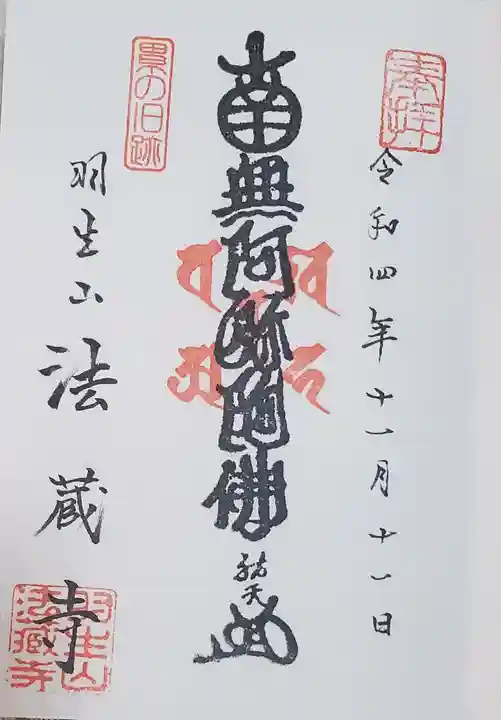 奉拝
令和四年十一月十一日
南無阿弥陀佛
祐天
累の旧跡
羽生山
法蔵寺
羽生山
法蔵寺